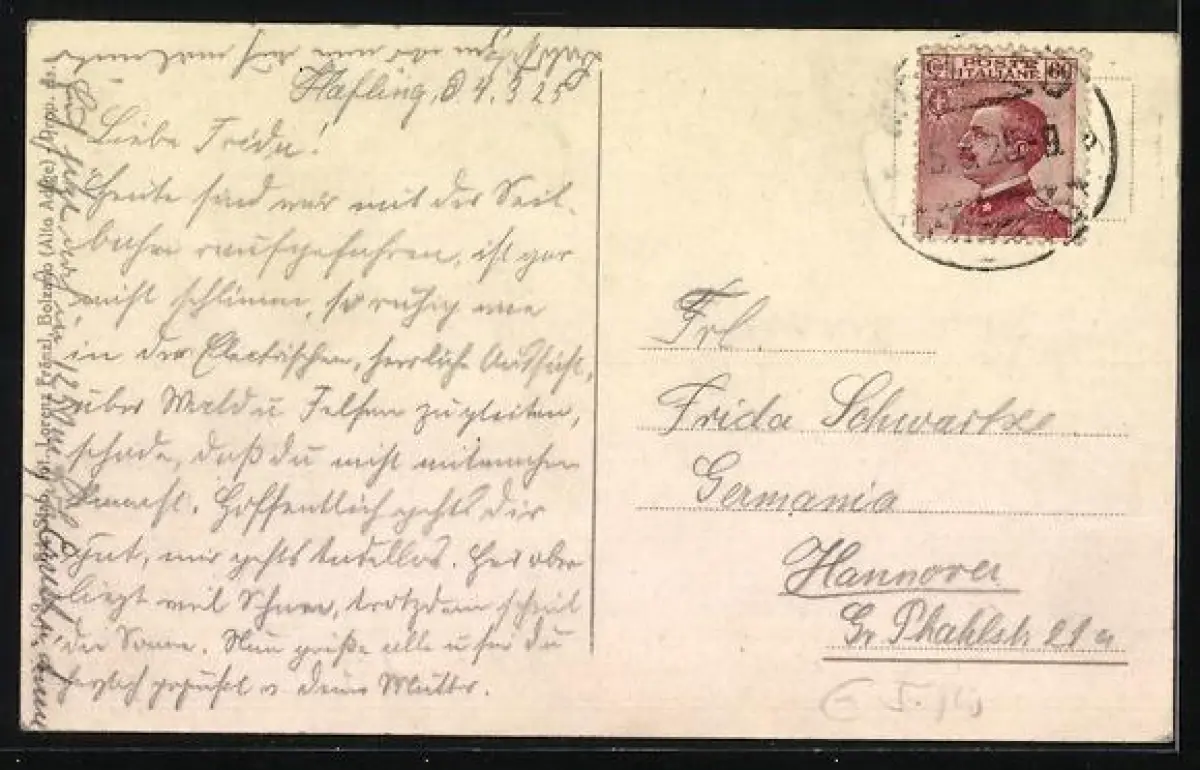 Hafling, d 4.5 25
Liebe Frida!
Heute sind wir mit der Seil-
bahn raufgefahren, ist gar
nicht schlimm, so ruhig wie
in der Electrischen, herrliche Aussicht,
über Wald u Felsen zu gleiten,
schade, daß du nicht mitmachen
kannst. Hoffentlich gehts dir
gut, mir gehts tadellos. Hier oben
liegt viel Schnee, trotzdem scheint
die Sonne. Nun grüße alle u sei du
herzlich geküßt v deine Mutter.
Lorenz Fränzl, Bolzano (Alto Adige)
POSTE
ITALIANE
60
Frl.
Frida Schwartze
Germania
Hannover
Gr Pfahlstr 21 a